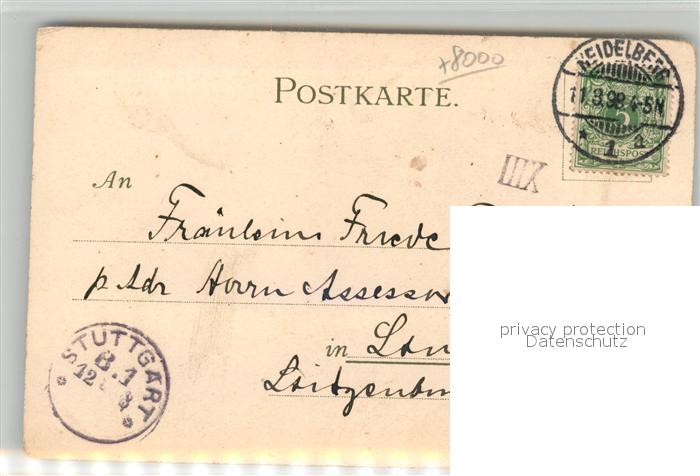 +8000
HEIDELBERG
11.3.98.4-5N
* 1 a
5
REICHSPOST
POSTKARTE.
IIIX
An
Fräulein Friede
p Adr Herrn Assessor
in
privacy protection
Datenschutz
STUTTGART
B.1
12